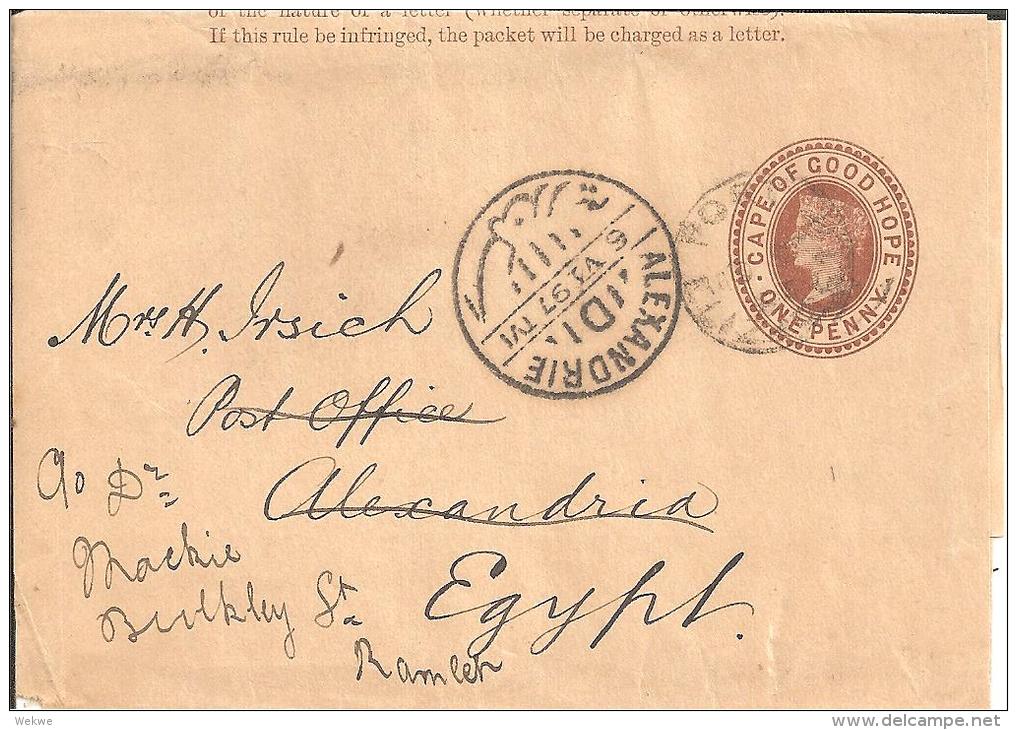 of the nature of a letter (whether separate or otherwise).
If this rule be infringed, the packet will be charged as a letter.
CAPE OF GOOD HOPE
ONE PENNY
ALEXANDRIE
6 VI 97 TVI
D
Mrs H. Irsich
Post Office
Alexandria
Egypt.
c/o Dr
Mackie
Bulkley St
Ramleh
Wekwe
delcampe.net